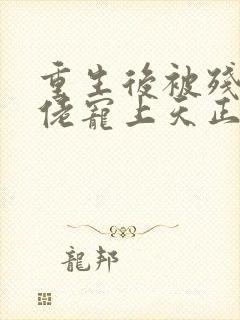 重生後被殘
佬寵上天正
龍邦